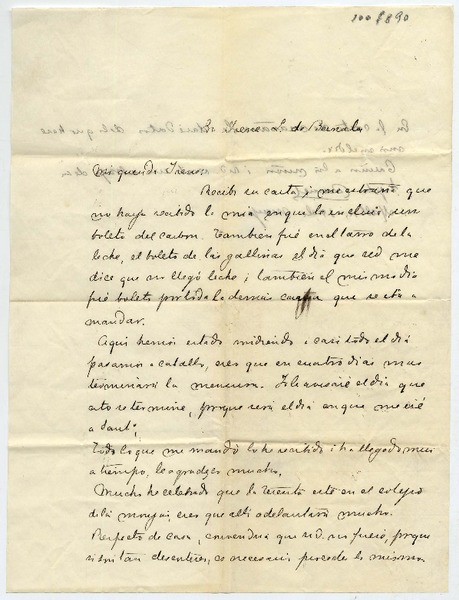 100 f 890
Sra Irene L. de Bernales
Mi querida Irene:
Recibí su carta i me estraña que
no haya recibido la mia en que le incluí un
boleto del carbon. Tambien fué en el tarro de la
leche, el boleto de las gallinas el dia que Ud me
dice que no llegó leche i tambien el mismo dia
fué boleto por toda la demás que se iba a
mandar.
Aquí hemos estado midiendo i casi todo el dia
pasamos a caballo, creo que en cuatro dias mas
terminará la mensura. Le avisaré el dia que
esto se termine, porque será el dia en que me iré
a Sant;
Todo lo que me mandó lo he recibido i ha llegado mui
a tiempo, le agradezco mucho.
Mucho he celebrado que la esté en el colejio
de las monjas, creo que allí adelantará mucho.
Respecto de casa, convendría que Ud. se fije, porque
si son tan, es necesario proceder lo mismo